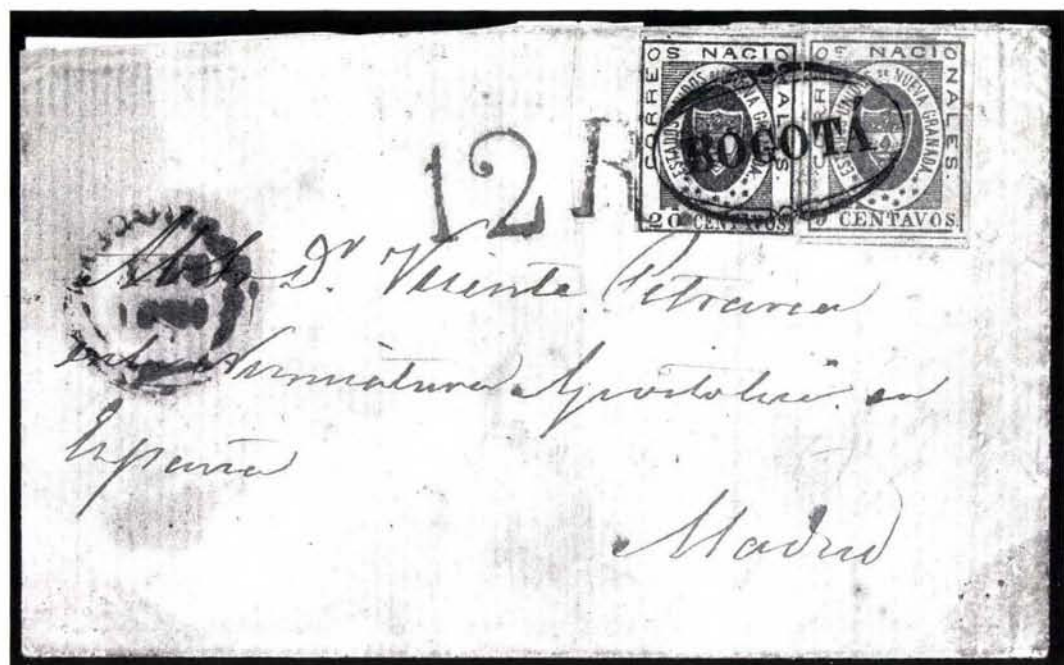 CORREOS NACIONALES.
ESTADOS UNIDOS DE NUEVA GRANADA.
20 CENTAVOS.
CORREOS NACIONALES.
ESTADOS UNIDOS DE NUEVA GRANADA.
CENTAVOS.
BOGOTÁ
12 R
Dr Vicente
Nunciatura Apostolica en
España
Madrid